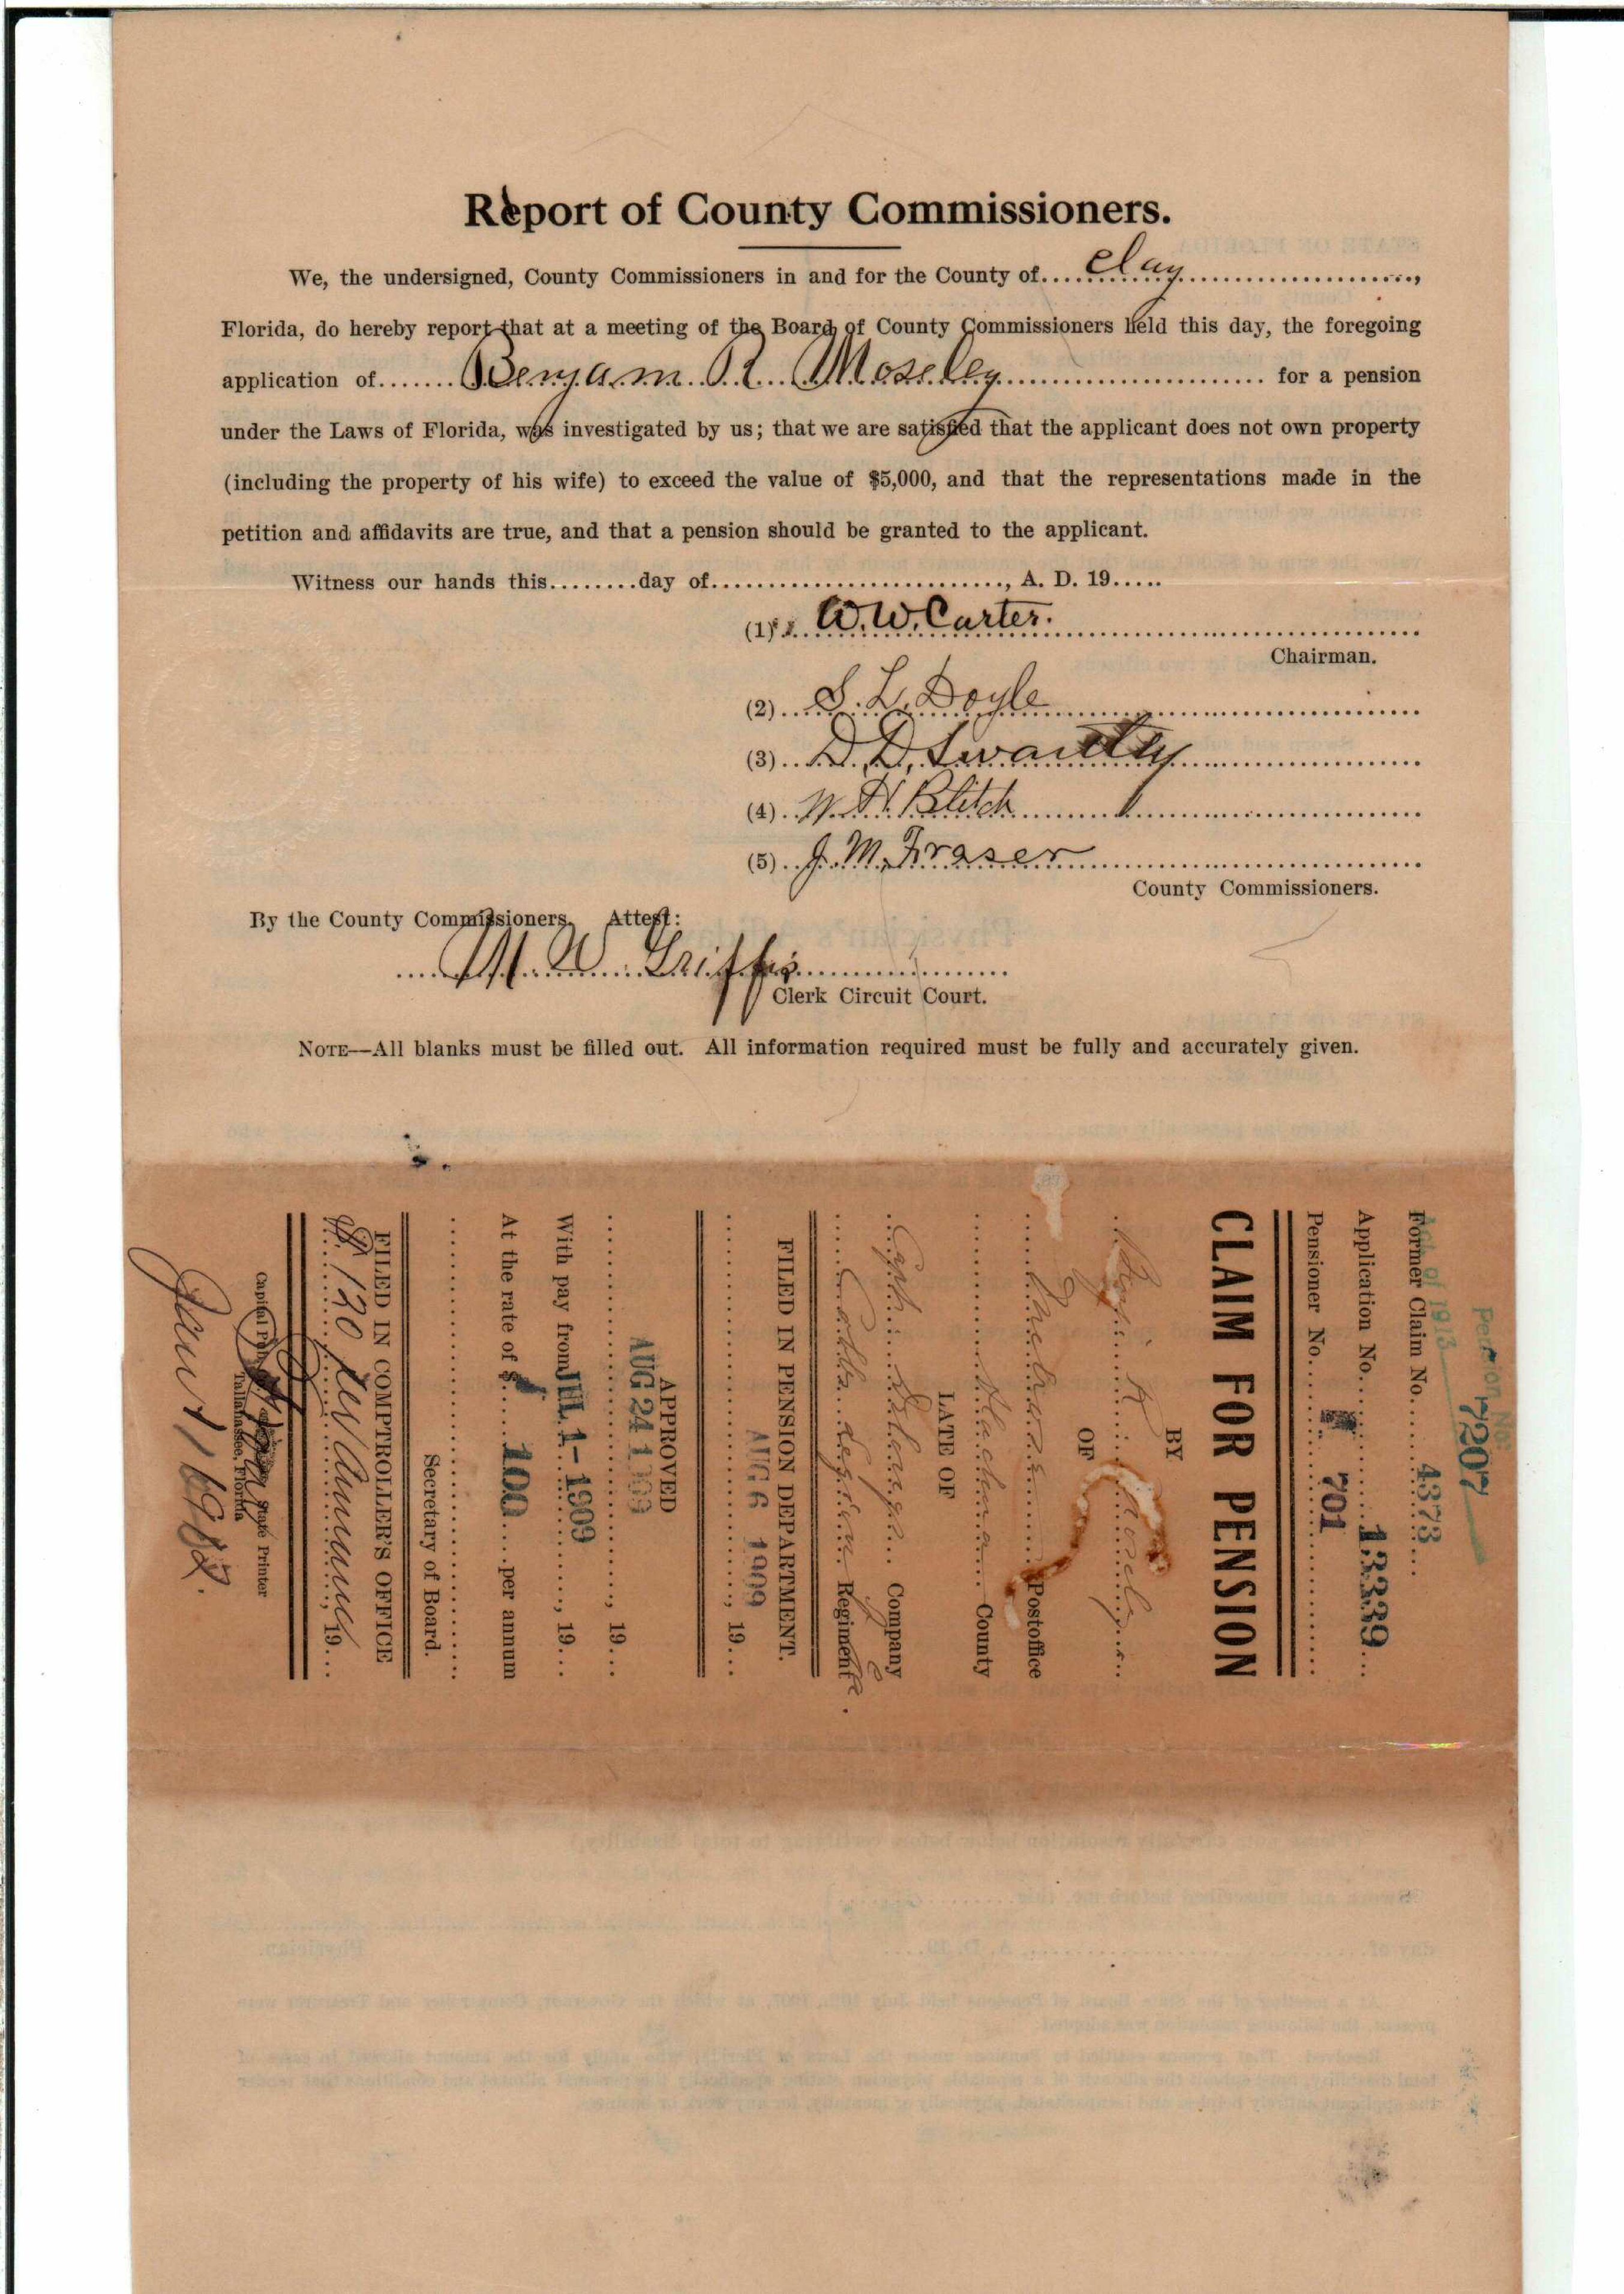 Report of County Commissioners.
We, the undersigned, County Commissioners in and for the County of....Clay....................,
Florida, do hereby report that at a meeting of the Board of County Commissioners held this day, the foregoing
application of.......Benjamin R. Moseley.......................... for a pension
under the Laws of Florida, was investigated by us; that we are satisfied that the applicant does not own property
(including the property of his wife) to exceed the value of $5,000, and that the representations made in the
petition and affidavits are true, and that a pension should be granted to the applicant.
Witness our hands this........day of............................, A. D. 19.....
(1) W.W. Carter.
Chairman.
(2) S. L. Doyle
(3) D. D.
(4) W. H. Blitch
(5) J. M. Fraser
County Commissioners.
By the County Commissioners, Attest:
Clerk Circuit Court.
NOTE—All blanks must be filled out. All information required must be fully and accurately given.
Pension No. 7207
Act of 1913
Former Claim No. 4373
Application No. 13339
Pensioner No. 701
CLAIM FOR PENSION
BY
Benj. R. Mosely
OF
Melrose Postoffice
Alachua County
LATE OF
Company
Cobbs Legion Regiment
FILED IN PENSION DEPARTMENT.
AUG 6 1909, 19...
APPROVED
AUG 24 1909, 19...
With pay from JUL 1-1909, 19...
At the rate of $ 100 per annum
Secretary of Board.
FILED IN COMPTROLLER'S OFFICE
$120 per Annum, 19...
State Printer
Tallahassee, Florida